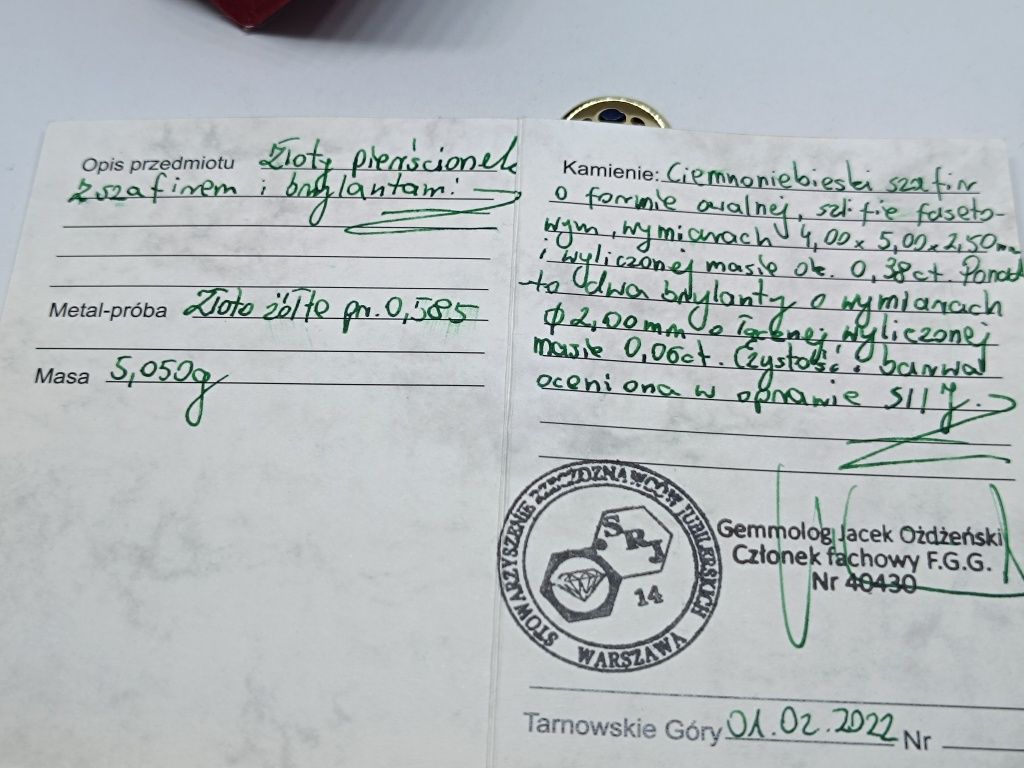 Opis przedmiotu Złoty pierścionek
z szafirem i brylantami
Metal-próba Złoto żółte pr. 0,585
Masa 5,050g
Kamienie: Ciemnoniebieski szafir
o formie owalnej, szlifie faseto-
wym, wymiarach 4,00 x 5,00 x 2,50mm
i wyliczonej masie ok. 0,38ct. Ponad
-to dwa brylanty o wymiarach
ϕ 2,00mm o łącznej wyliczonej
masie 0,06ct. Czystość i barwa
oceniona w oprawie SI1
STOWARZYSZENIE RZECZOZNAWCÓW JUBILERSKICH
SRJ
14
WARSZAWA
Gemmolog Jacek Ożdżeński
Członek fachowy F.G.G.
Nr 40430
Tarnowskie Góry 01.02.2022 Nr